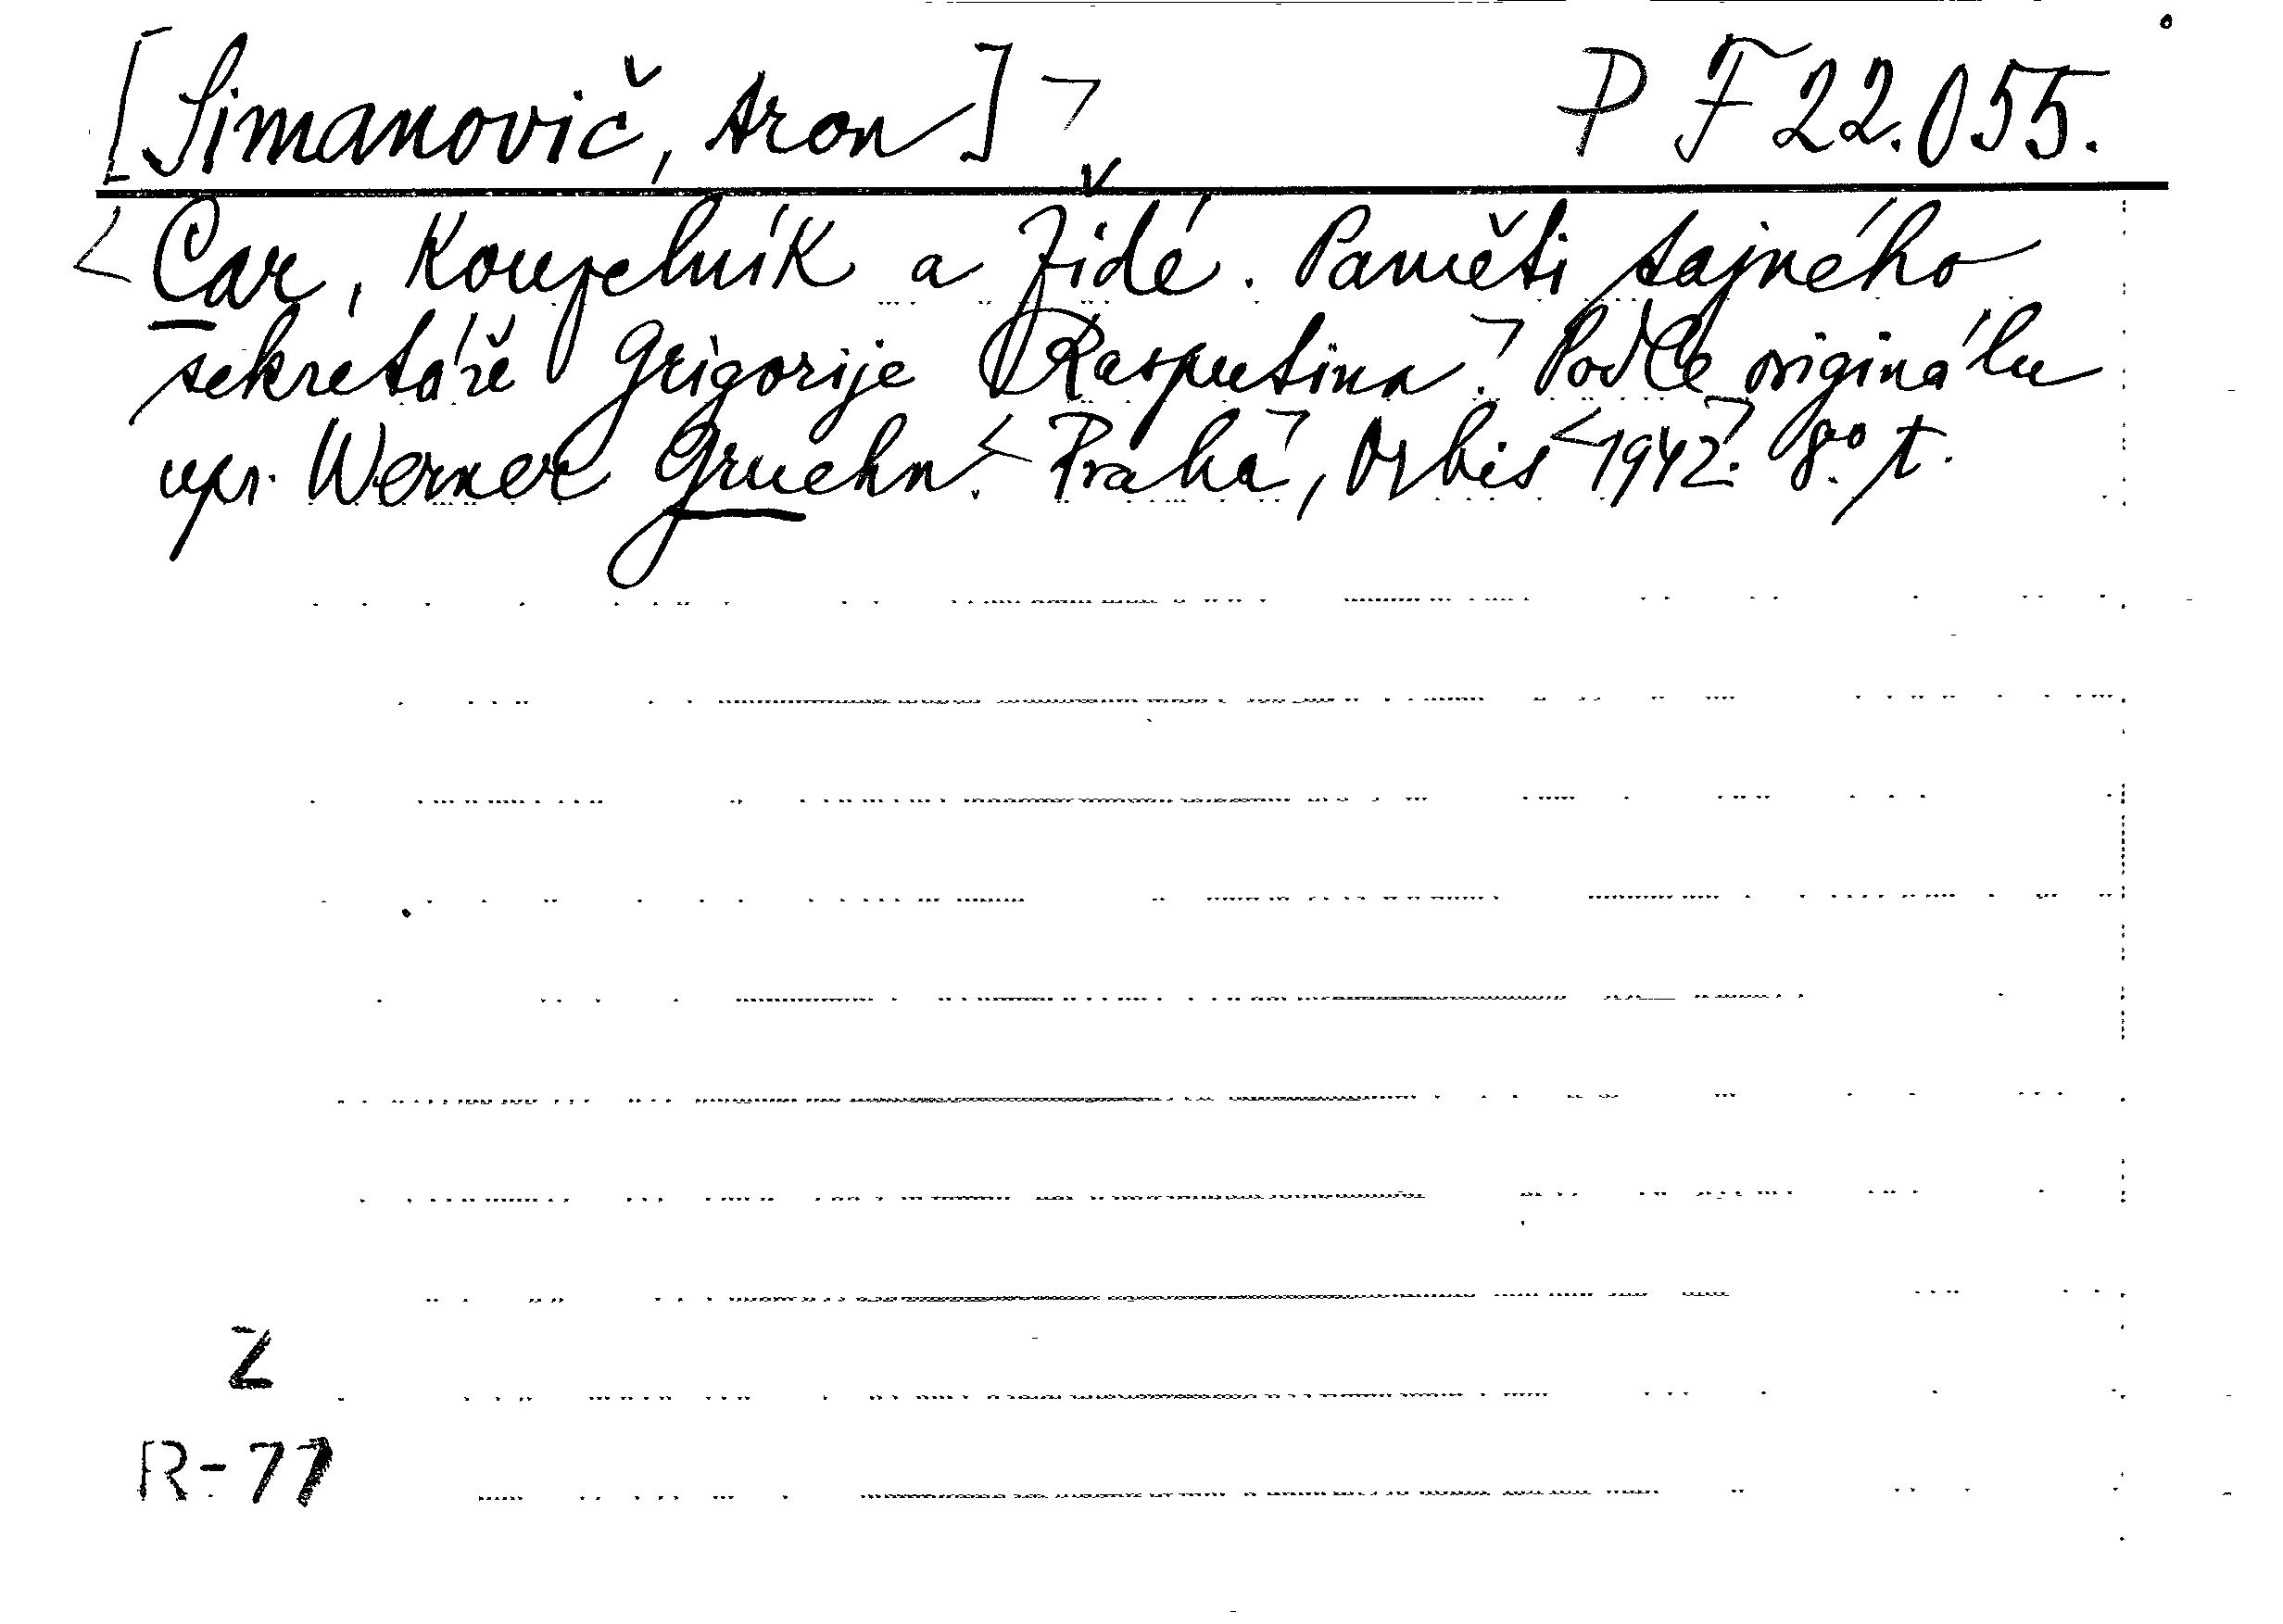 [Simanovič, Aron] ¬ P F 22.055.
<Car, Koupelník a Židé. Paměti tajného
sekretáře Grigorije Rasputina.¬ Podle originálu
upr. Werner Gruehn.< Praha¬, Orbis <1942¬. 8.° t.
Z
R-77